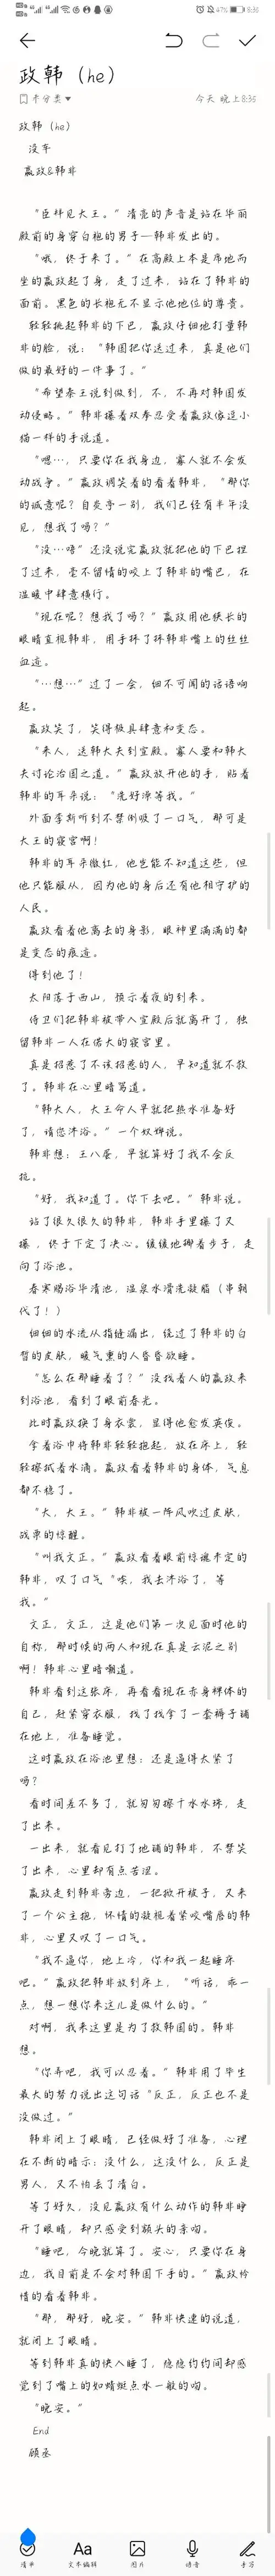 47% 8:35
政韩（he）
未分类
今天 晚上8:35
政韩（he）
没车
嬴政&韩非
“臣拜见大王。”清亮的声音是站在华丽
殿前的身穿白袍的男子—韩非发出的。
“哦，终于来了。”在高殿上本是席地而
坐的嬴政起了身，走了过来，站在了韩非的
面前。黑色的长袍无不显示他地位的尊贵。
轻轻挑起韩非的下巴，嬴政仔细地打量韩
非的脸，说：“韩国把你送过来，真是他们
做的最好的一件事了。”
“希望秦王说到做到，不，不再对韩国发
动侵略。”韩非攥着双拳忍受着嬴政像逗小
猫一样的手说道。
“嗯…，只要你在我身边，寡人就不会发
动战争。”嬴政调笑着的看着韩非，“那你
的诚意呢？自炎亭一别，我们已经有半年没
见，想我了吗？”
“没…唔”还没说完嬴政就把他的下巴捏
了过来，毫不留情的咬上了韩非的嘴巴，在
温暖中肆意横行。
“现在呢？想我了吗？”嬴政用他狭长的
眼睛直视韩非，用手抹了抹韩非嘴上的丝丝
血迹。
“…想…”过了一会，细不可闻的话语响
起。
嬴政笑了，笑得极具肆意和变态。
“来人，送韩大夫到宣殿。寡人要和韩大
夫讨论治国之道。”嬴政放开他的手，贴着
韩非的耳朵说：“洗好澡等我。”
外面李斯听到不禁倒吸了一口气，那可是
大王的寝宫啊！
韩非的耳朵微红，他岂能不知道这些，但
他只能服从，因为他的身后还有他相守护的
人民。
嬴政看着他离去的身影，眼神里满满的都
是变态的痕迹。
得到他了！
太阳落于西山，预示着夜的到来。
侍卫们把韩非被带入宣殿后就离开了，独
留韩非一人在偌大的寝宫里。
真是招惹了不该招惹的人，早知道就不救
了。韩非在心里暗骂道。
“韩大人，大王命人早就把热水准备好
了，请您沐浴。”一个奴婢说。
韩非想：王八蛋，早就算好了我不会反
抗。
“好，我知道了。你下去吧。”韩非说。
站了很久很久的韩非，韩非手里攥了又
攥，终于下定了决心。缓缓地挪着步子，走
向了浴池。
春寒赐浴华清池，温泉水滑洗凝脂（串朝
代了！）
细细的水流从指缝漏出，绕过了韩非的白
皙的皮肤，暖气熏的人昏昏欲睡。
“怎么在那睡着了？”没找着人的嬴政来
到浴池，看到了眼前春光。
此时嬴政换了身衣裳，显得他愈发英俊。
拿着浴巾将韩非轻轻抱起，放在床上，轻
轻擦拭着水滴。嬴政看着韩非的身体，气息
都不稳了。
“大，大王。”韩非被一阵风吹过皮肤，
战栗的惊醒。
“叫我文正。”嬴政看着眼前惊魂未定的
韩非，叹了口气“唉，我去沐浴了，等
我。”
文正，文正，这是他们第一次见面时他的
自称，那时候的两人和现在真是云泥之别
啊！韩非心里暗嘲道。
韩非看到这张床，再看看现在赤身裸体的
自己，赶紧穿衣服，找了找拿了一套褥子铺
在地上，准备睡觉。
这时嬴政在浴池里想：还是逼得太紧了
吗？
看时间差不多了，就匆匆擦干水水珠，走
了出来。
一出来，就看见打了地铺的韩非，不禁笑
了出来，心里却有点苦涩。
嬴政走到韩非旁边，一把掀开被子，又来
了一个公主抱，怀情的凝视着紧咬嘴唇的韩
非，心里又叹了一口气。
“我不逼你，地上冷，你和我一起睡床
吧。”嬴政把韩非放到床上，“听话，乖一
点，想一想你来这儿是做什么的。”
对啊，我来这里是为了救韩国的。韩非
想。
“你弄吧，我可以忍着。”韩非用了毕生
最大的努力说出这句话“反正，反正也不是
没做过。”
韩非闭上了眼睛，已经做好了准备，心理
在不断的暗示：没什么，这没什么，反正是
男人，又不怕丢了清白。
等了好久，没见嬴政有什么动作的韩非睁
开了眼睛，却只感受到额头的亲吻。
“睡吧，今晚就算了。安心，只要你在身
边，我目前是不会对韩国下手的。”嬴政怜
惜的看着韩非。
“那，那好，晚安。”韩非快速的说道，
就闭上了眼睛。
等到韩非真的快入睡了，隐隐约约间却感
觉到了嘴上的如蜻蜓点水一般的吻。
“晚安。”
End
顾丞
清单 Aa 文本编辑 图片 语音 手写